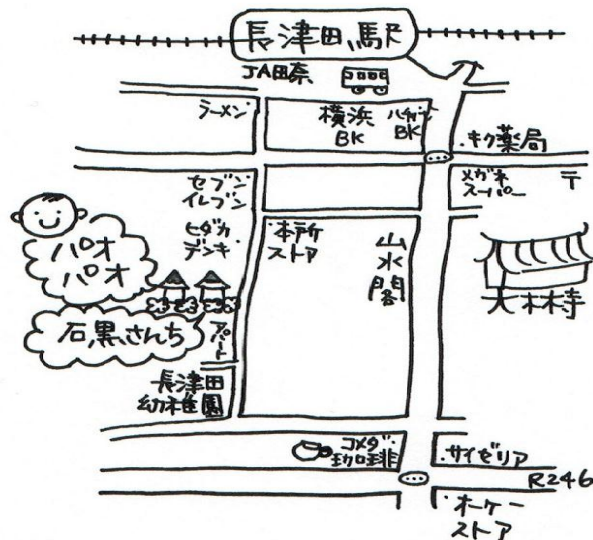 長津田駅
JA田奈
ラーメン
横浜
BK
ハチジュウニ
BK
キク薬局
セブン
イレブン
メガネ
スーパー
〒
ヒダカ
デンキ
本所
ストア
山水閣
大林寺
パオ
パオ
石黒さんち
アパート
長津田
幼稚園
コメダ
珈琲
サイゼリア
R246
オーケー
ストア